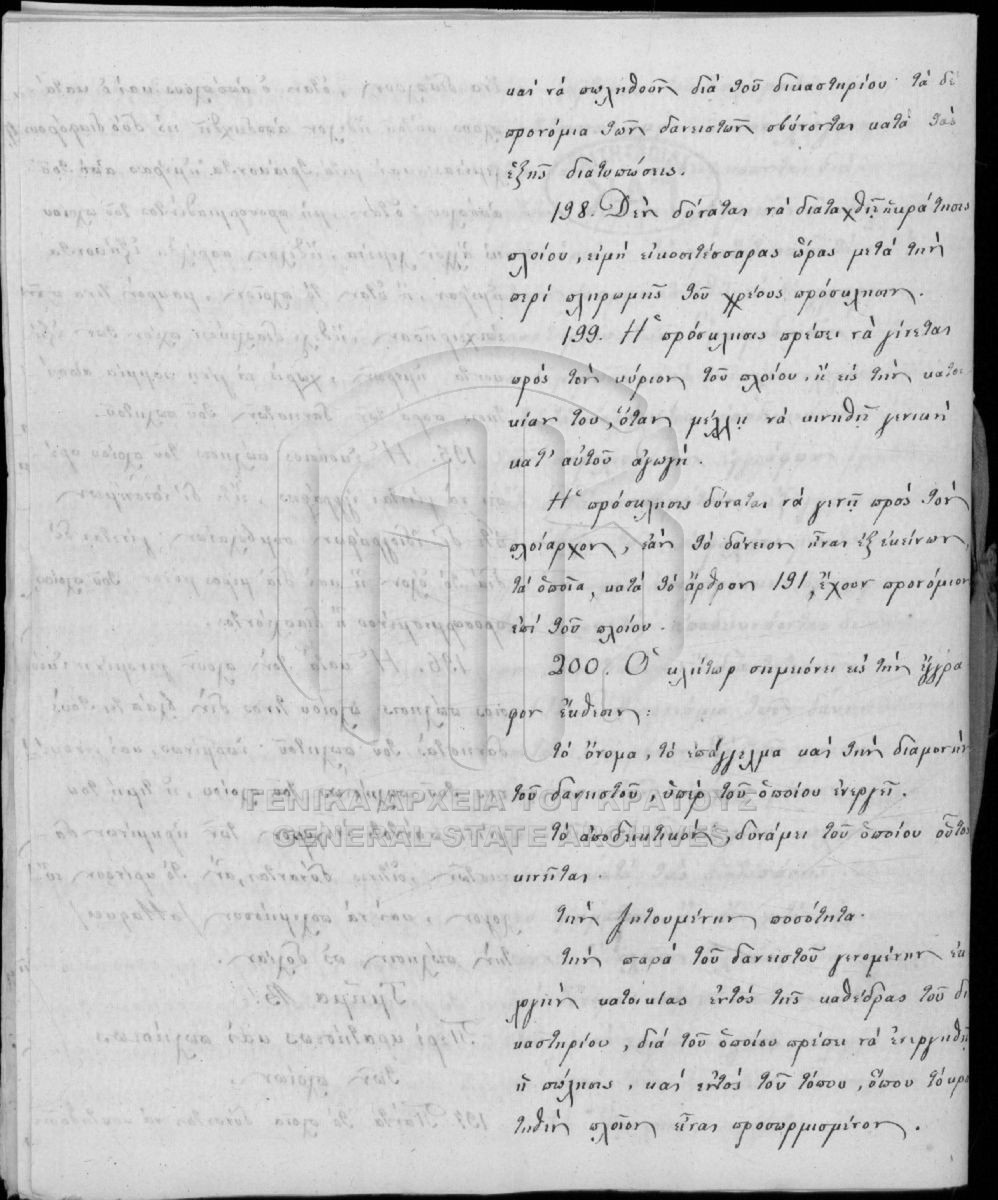 καὶ νὰ πωληθοῦν διὰ τοῦ δικαστηρίου· τὰ δὲ
προνόμια τῶν δανειστῶν σβύνονται κατὰ τὰς
ἑξῆς διατυπώσεις.
198. Δὲν δύναται νὰ διαταχθῇ ἡ κράτησις
πλοίου, εἰμὴ εἰκοσιτέσσαρας ὥρας μετὰ τὴν
περὶ πληρωμῆς τοῦ χρέους πρόσκλησιν.
199. Ἡ πρόσκλησις πρέπει νὰ γίνεται
πρὸς τὸν κύριον τοῦ πλοίου, ἢ εἰς τὴν κατοι-
κίαν του, ὅταν μέλλῃ νὰ κινηθῇ γενικὴ
κατ' αὐτοῦ ἀγωγή.
Ἡ πρόσκλησις δύναται νὰ γενῇ πρὸς τὸν
πλοίαρχον, ἐὰν τὸ δάνειον ἦναι ἐξ ἐκείνων,
τὰ ὁποῖα, κατὰ τὸ ἄρθρον 191, ἔχουν προνόμιον
ἐπὶ τοῦ πλοίου.
200. Ὁ κλήτωρ σημειόνει εἰς τὴν ἔγγρα
φον ἔκθεσιν:
τὸ ὄνομα, τὸ ἐπάγγελμα καὶ τὴν διαμονὴν
τοῦ δανειστοῦ, ὑπὲρ τοῦ ὁποίου ἐνεργεῖ.
ΓΕΝΙΚΑ ΑΡΧΕΙΑ ΤΟΥ ΚΡΑΤΟΥΣ
τὸ ἀποδεικτικὸν, δυνάμει τοῦ ὁποίου οὗτος
GENERAL STATE ARCHIVES
κινεῖται.
τὴν ζητουμένην ποσότητα.
τὴν παρὰ τοῦ δανειστοῦ γενομένην ἐκ
λογὴν κατοικίας ἐντὸς τῆς καθέδρας τοῦ δι
καστηρίου, διὰ τοῦ ὁποίου πρέπει νὰ ἐνεργηθῇ
ἡ πώλησις, καὶ ἐντὸς τοῦ τόπου, ὅπου τὸ κρα
τηθὲν πλοῖον εἶναι προσωρμισμένον.